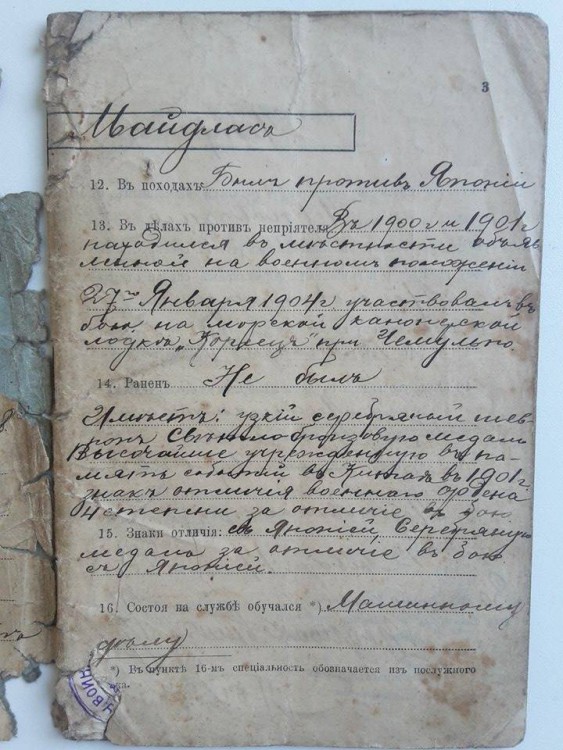 3
Майдласъ
12. Въ походахъ: Былъ противъ Японіи
13. Въ дѣлахъ противъ непріятеля Въ 1900 г и 1901 г
находился въ мѣстности объяв
ленной на военномъ положеніи
27го Января 1904 г. участвовалъ въ
бою на морской канонерской
лодкѣ „Кореецъ" при Чемульпо
14. Раненъ Не былъ
Имѣетъ: узкій серебряный шев
ронъ Свѣтлобронзовую медаль
Высочайше учрежденную въ па-
мять событій въ Китаѣ въ 1901 г
знакъ отличія военнаго ордена
4 степени за отличіе въ бою
15. Знаки отличія: съ Японіей, Серебряную
медаль за отличіе въ бою
съ Японіей.
16. Состоя на службѣ обучался *) Машинному
дѣлу
*) Въ пунктѣ 16-мъ спеціальность обозначается изъ послужного
ВОИН